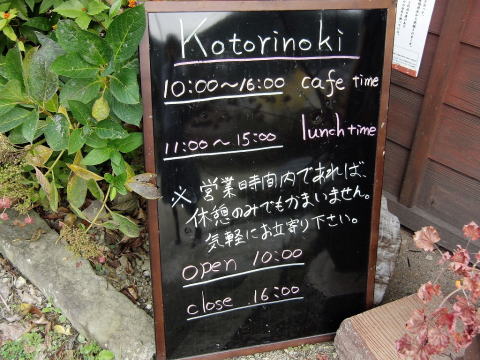 Kotorinoki
10:00～16:00 cafe time
11:00～15:00 lunch time
※営業時間内であれば、
休憩のみでもかまいません。
気軽にお立寄り下さい。
open 10:00
close 16:00